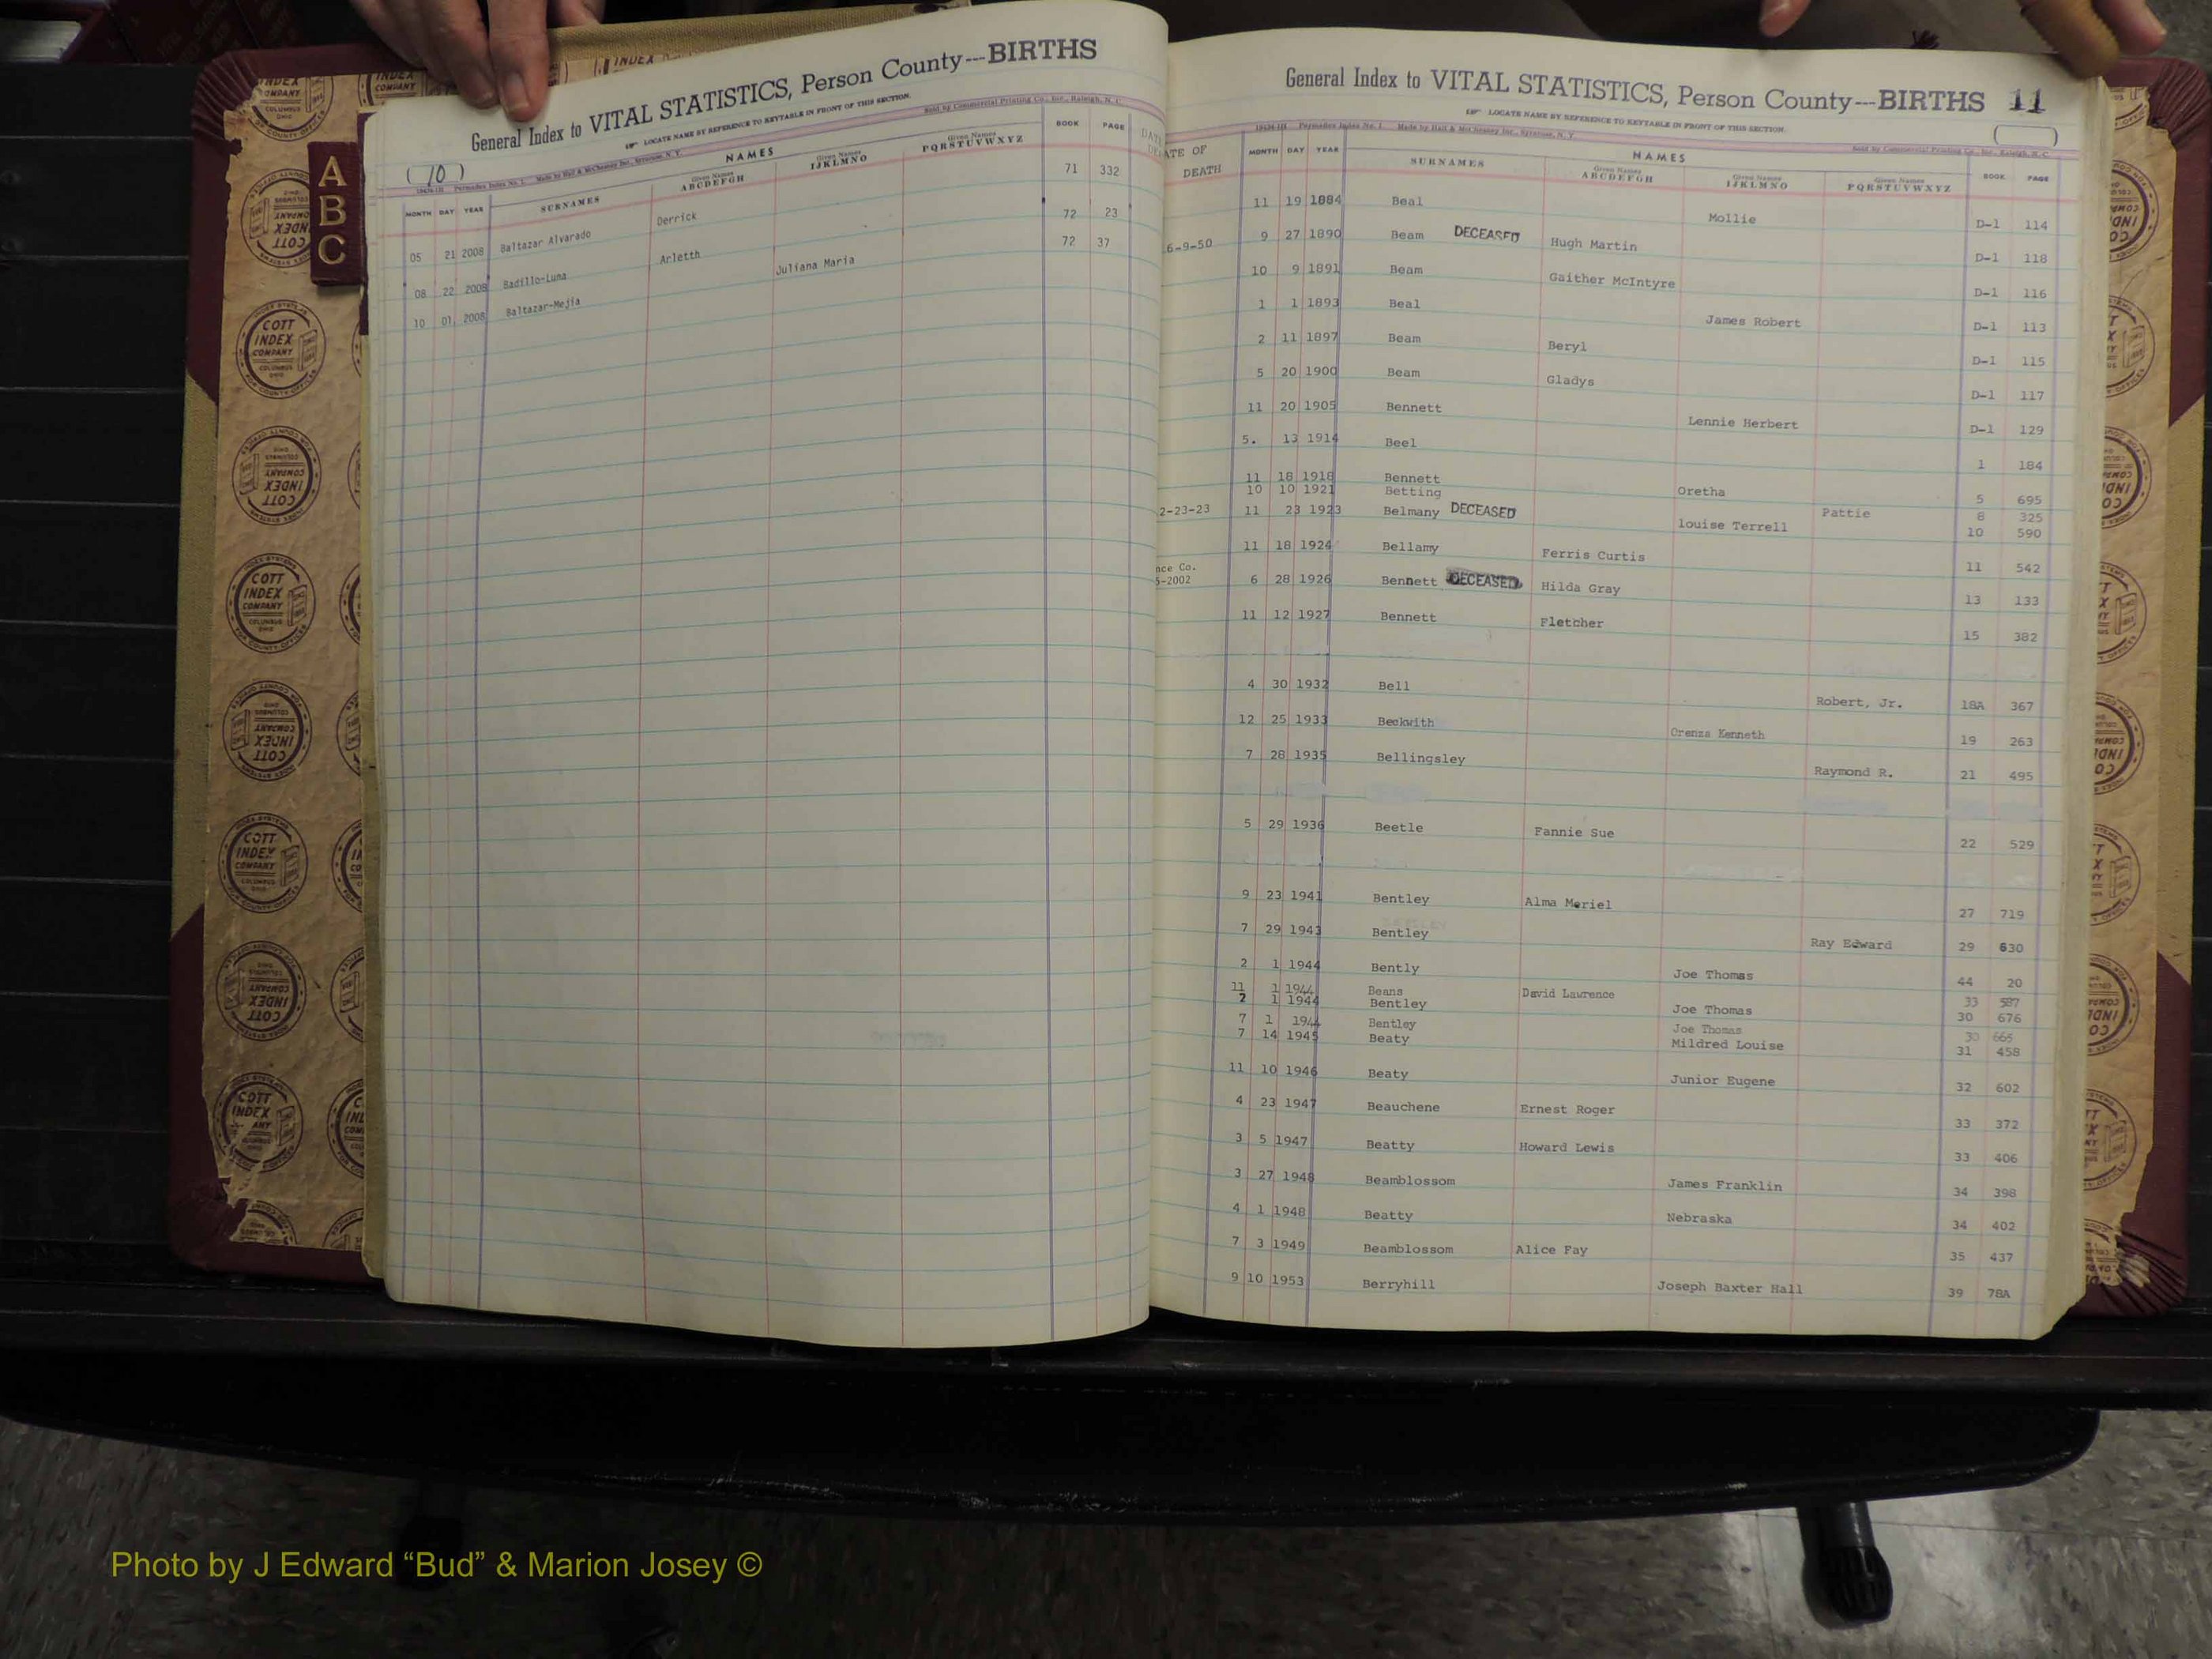 General Index to VITAL STATISTICS, Person County---BIRTHS
LOCATE NAME BY REFERENCE TO KEYTABLE IN FRONT OF THIS SECTION.
(10)
Sold by Commercial Printing Co., Inc., Raleigh, N. C.
NAMES
MONTH DAY YEAR SURNAMES Given Names ABCDEFGH Given Names IJKLMNO Given Names PQRSTUVWXYZ BOOK PAGE
05 21 2008 Baltazar Alvarado Derrick 71 332
08 22 2008 Badillo-Luna Arletth 72 23
10 01 2008 Baltazar-Mejia Juliana Maria 72 37
A
B
C
General Index to VITAL STATISTICS, Person County---BIRTHS 11
LOCATE NAME BY REFERENCE TO KEYTABLE IN FRONT OF THIS SECTION.
Sold by Commercial Printing Co., Inc., Raleigh, N. C.
NAMES
DEATH MONTH DAY YEAR SURNAMES Given Names ABCDEFGH Given Names IJKLMNO Given Names PQRSTUVWXYZ BOOK PAGE
11 19 1884 Beal Mollie D-1 114
6-9-50 9 27 1890 Beam DECEASED Hugh Martin D-1 118
10 9 1891 Beam Gaither McIntyre D-1 116
1 1 1893 Beal James Robert D-1 113
2 11 1897 Beam Beryl D-1 115
5 20 1900 Beam Gladys D-1 117
11 20 1905 Bennett Lennie Herbert D-1 129
5. 13 1914 Beel 1 184
11 18 1918 Bennett Oretha 5 695
10 10 1921 Betting Pattie 8 325
2-23-23 11 23 1923 Belmany DECEASED louise Terrell 10 590
11 18 1924 Bellamy Ferris Curtis 11 542
nce Co.
5-2002 6 28 1926 Bennett DECEASED Hilda Gray 13 133
11 12 1927 Bennett Fletcher 15 382
4 30 1932 Bell Robert, Jr. 18A 367
12 25 1933 Beckwith Orenza Kenneth 19 263
7 28 1935 Bellingsley Raymond R. 21 495
5 29 1936 Beetle Fannie Sue 22 529
9 23 1941 Bentley Alma Meriel 27 719
7 29 1943 Bentley Ray Edward 29 630
2 1 1944 Bently Joe Thomas 44 20
11 1 1944 Beans David Lawrence 33 587
2 1 1944 Bentley Joe Thomas 30 676
7 1 1944 Bentley Joe Thomas 30 665
7 14 1945 Beaty Mildred Louise 31 458
11 10 1946 Beaty Junior Eugene 32 602
4 23 1947 Beauchene Ernest Roger 33 372
3 5 1947 Beatty Howard Lewis 33 406
3 27 1948 Beamblossom James Franklin 34 398
4 1 1948 Beatty Nebraska 34 402
7 3 1949 Beamblossom Alice Fay 35 437
9 10 1953 Berryhill Joseph Baxter Hall 39 78A
COTT INDEX COMPANY
COLUMBUS OHIO
Photo by J Edward “Bud” & Marion Josey ©